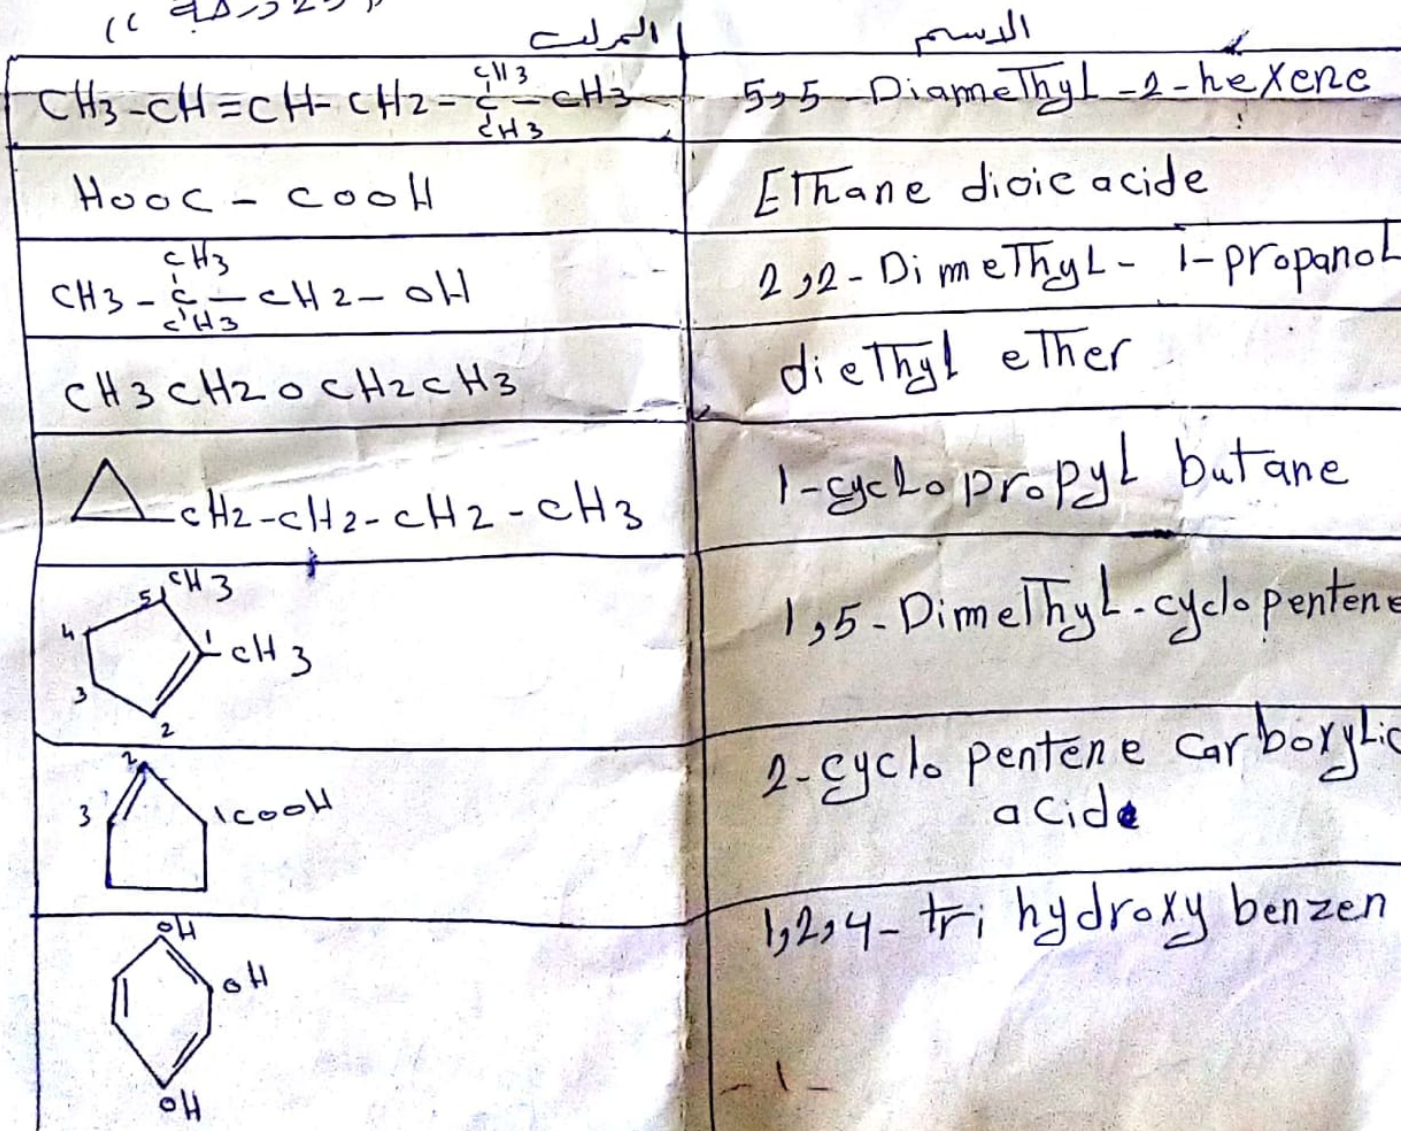 (( 25 درجة ))
المركب الاسم
CH3-CH=CH-CH2-C-CH3 5,5-Diamethyl-2-hexene
CH3
CH3
HOOC - COOH Ethane dioic acide
CH3
CH3-C-CH2-OH 2,2-Dimethyl-1-propanol
CH3
CH3CH2OCH2CH3 diethyl ether
CH2-CH2-CH2-CH3 1-cyclopropyl butane
5 CH3
4 1 CH3 1,5-Dimethyl-cyclopentene
3
2
2 2-cyclo pentene carboxylic
3 1 COOH acide
OH 1,2,4-tri hydroxy benzen
OH
OH
-1-